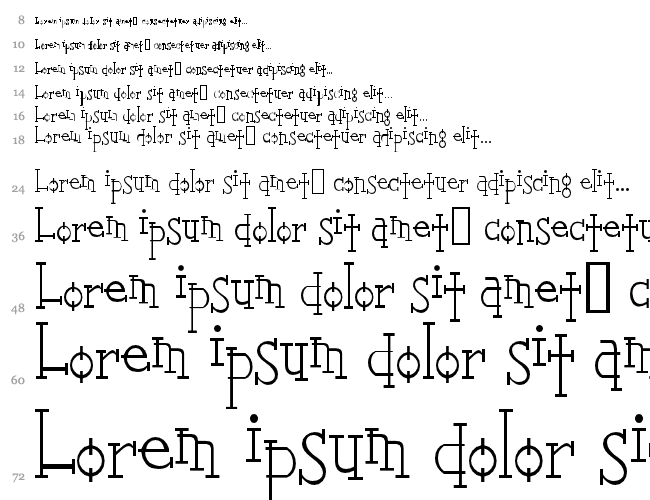 8 Lorem ipsum dolor sit amet▯ consectetuer adipiscing elit...
10 Lorem ipsum dolor sit amet▯ consectetuer adipiscing elit...
12 Lorem ipsum dolor sit amet▯ consectetuer adipiscing elit...
14 Lorem ipsum dolor sit amet▯ consectetuer adipiscing elit...
16 Lorem ipsum dolor sit amet▯ consectetuer adipiscing elit...
18 Lorem ipsum dolor sit amet▯ consectetuer adipiscing elit...
24 Lorem ipsum dolor sit amet▯ consectetuer adipiscing elit...
36 Lorem ipsum dolor sit amet▯ consectetu
48 Lorem ipsum dolor sit amet▯ c
60 Lorem ipsum dolor sit am
72 Lorem ipsum dolor si